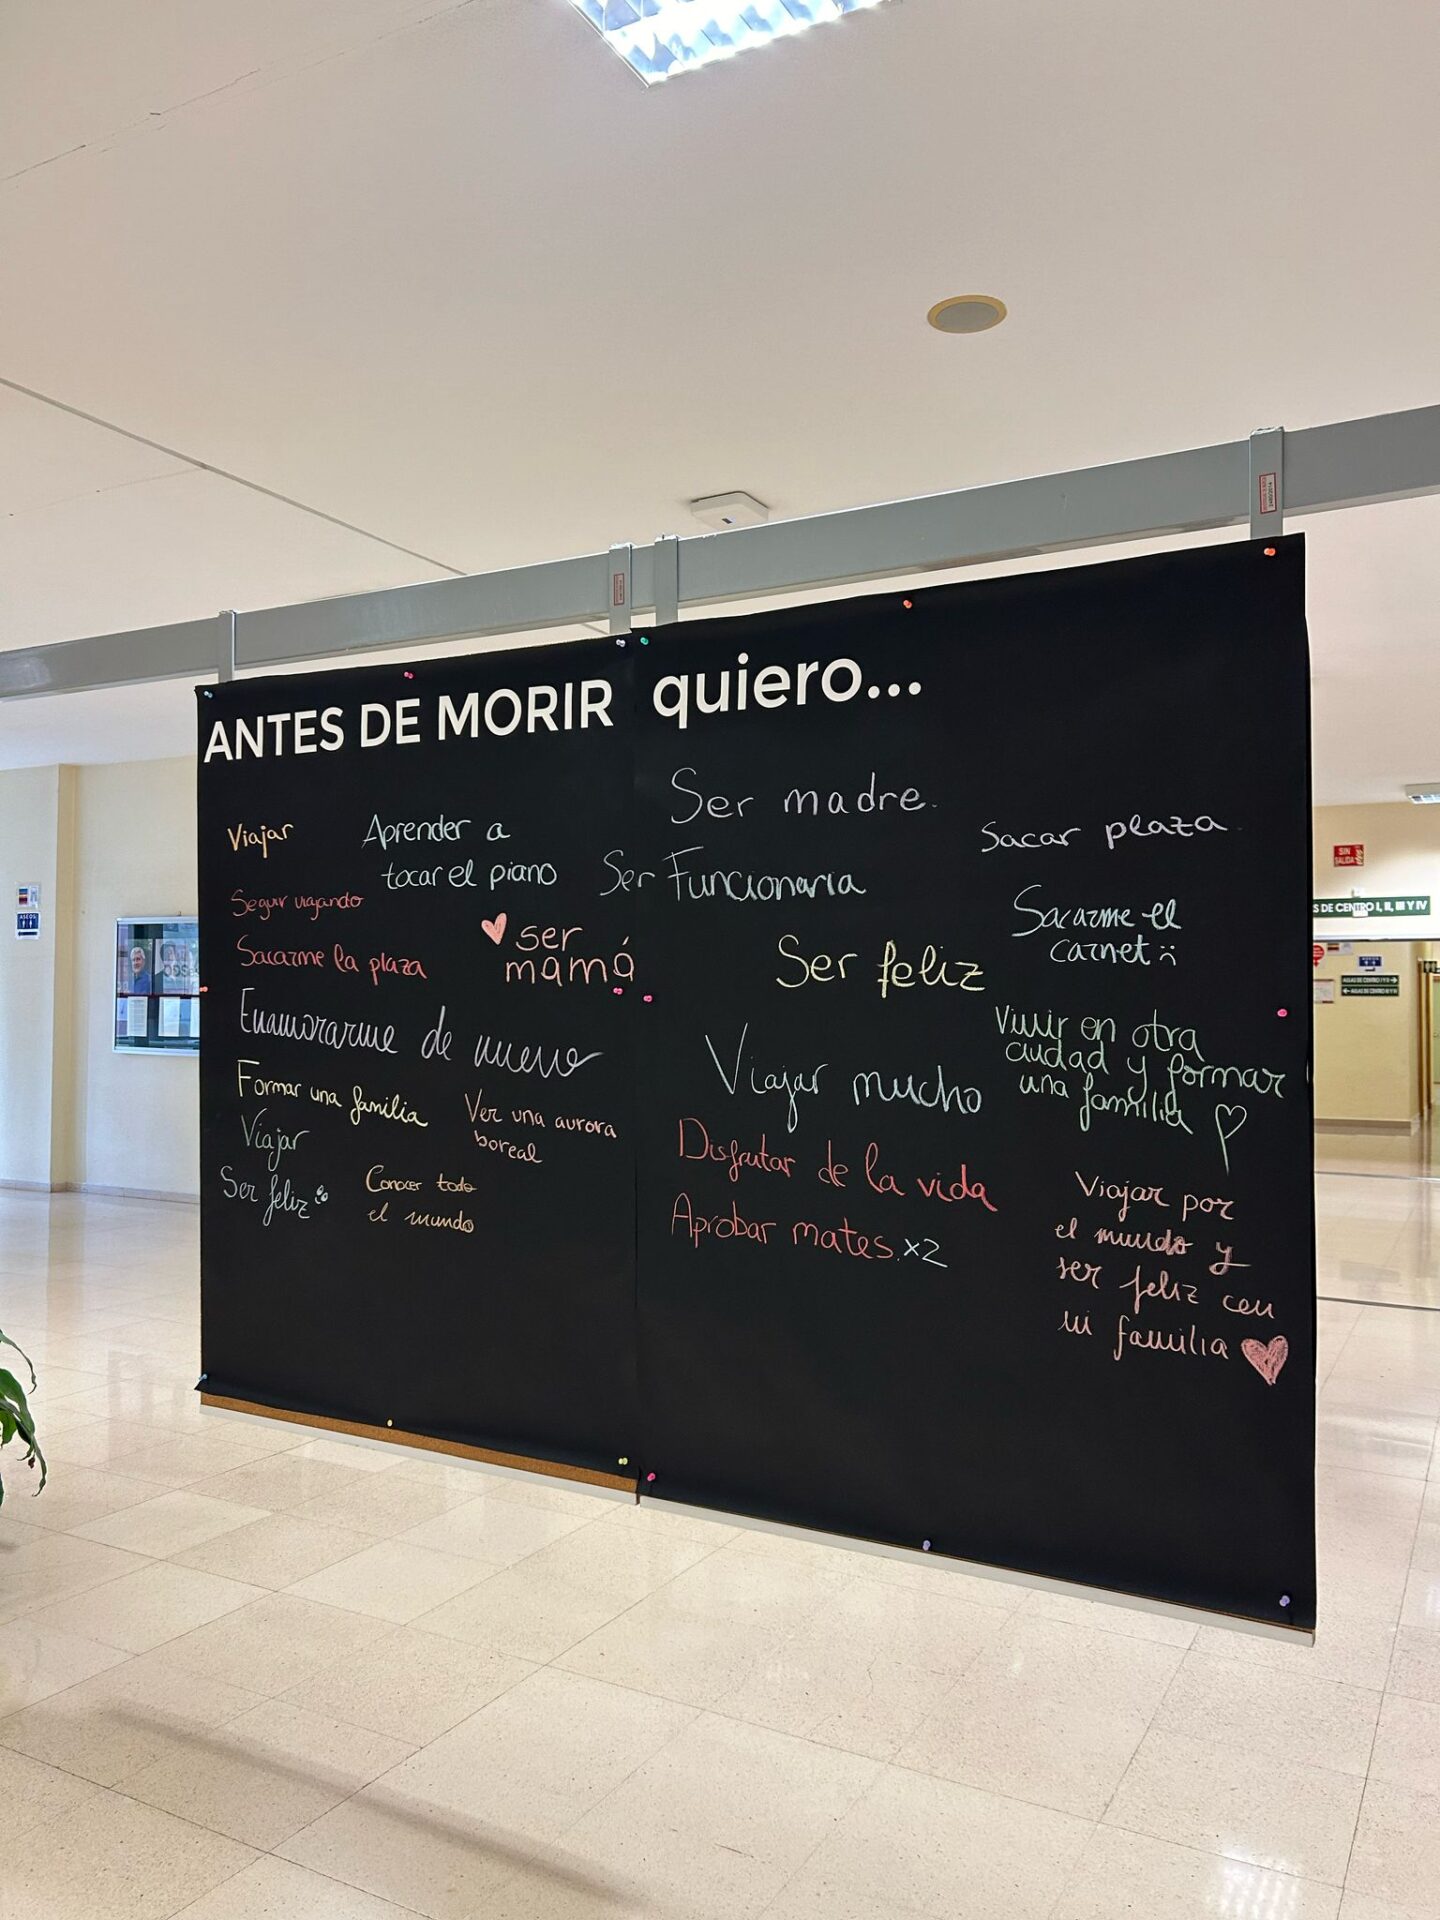 ANTES DE MORIR quiero...
Viajar
Aprender a
tocar el piano
Seguir viajando
Sacarme la plaza
ser
mamá
Enamorarme de nuevo
Formar una familia
Viajar
Ver una aurora
boreal
Ser feliz
Conocer todo
el mundo
Ser madre.
Ser Funcionaria
Sacar plaza.
Sacarme el
carnet
Ser feliz
Viajar mucho
Vivir en otra
ciudad y formar
una familia
Disfrutar de la vida
Aprobar mates. x2
Viajar por
el mundo y
ser feliz con
mi familia
ASEOS
SIN
SALIDA
S DE CENTRO I, II, III Y IV